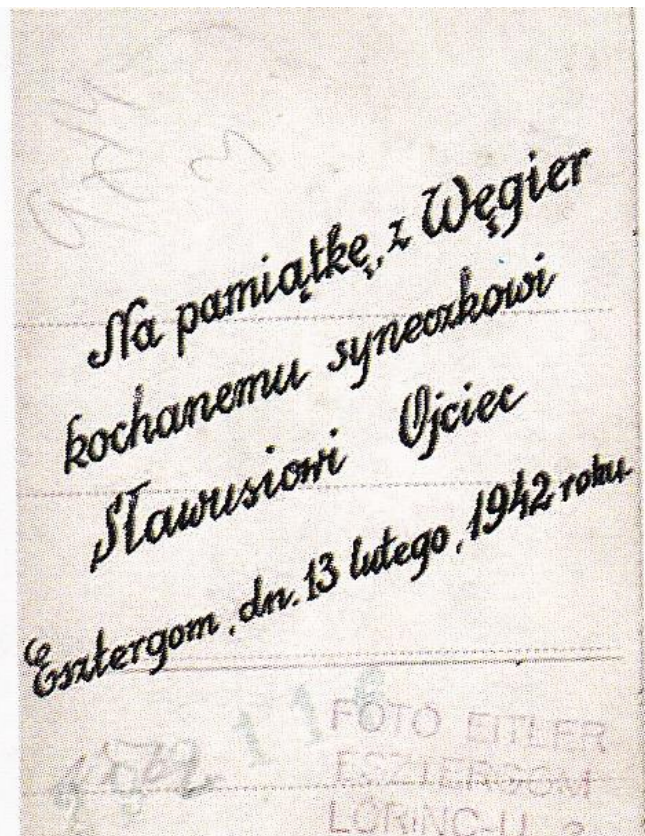 Na pamiątkę, z Węgier
kochanemu syneczkowi
Sławusiowi Ojciec
Esztergom, dn. 13 lutego, 1942 roku.
118
FOTO EITLER
ESZTERGOM
LŐRINC-U.